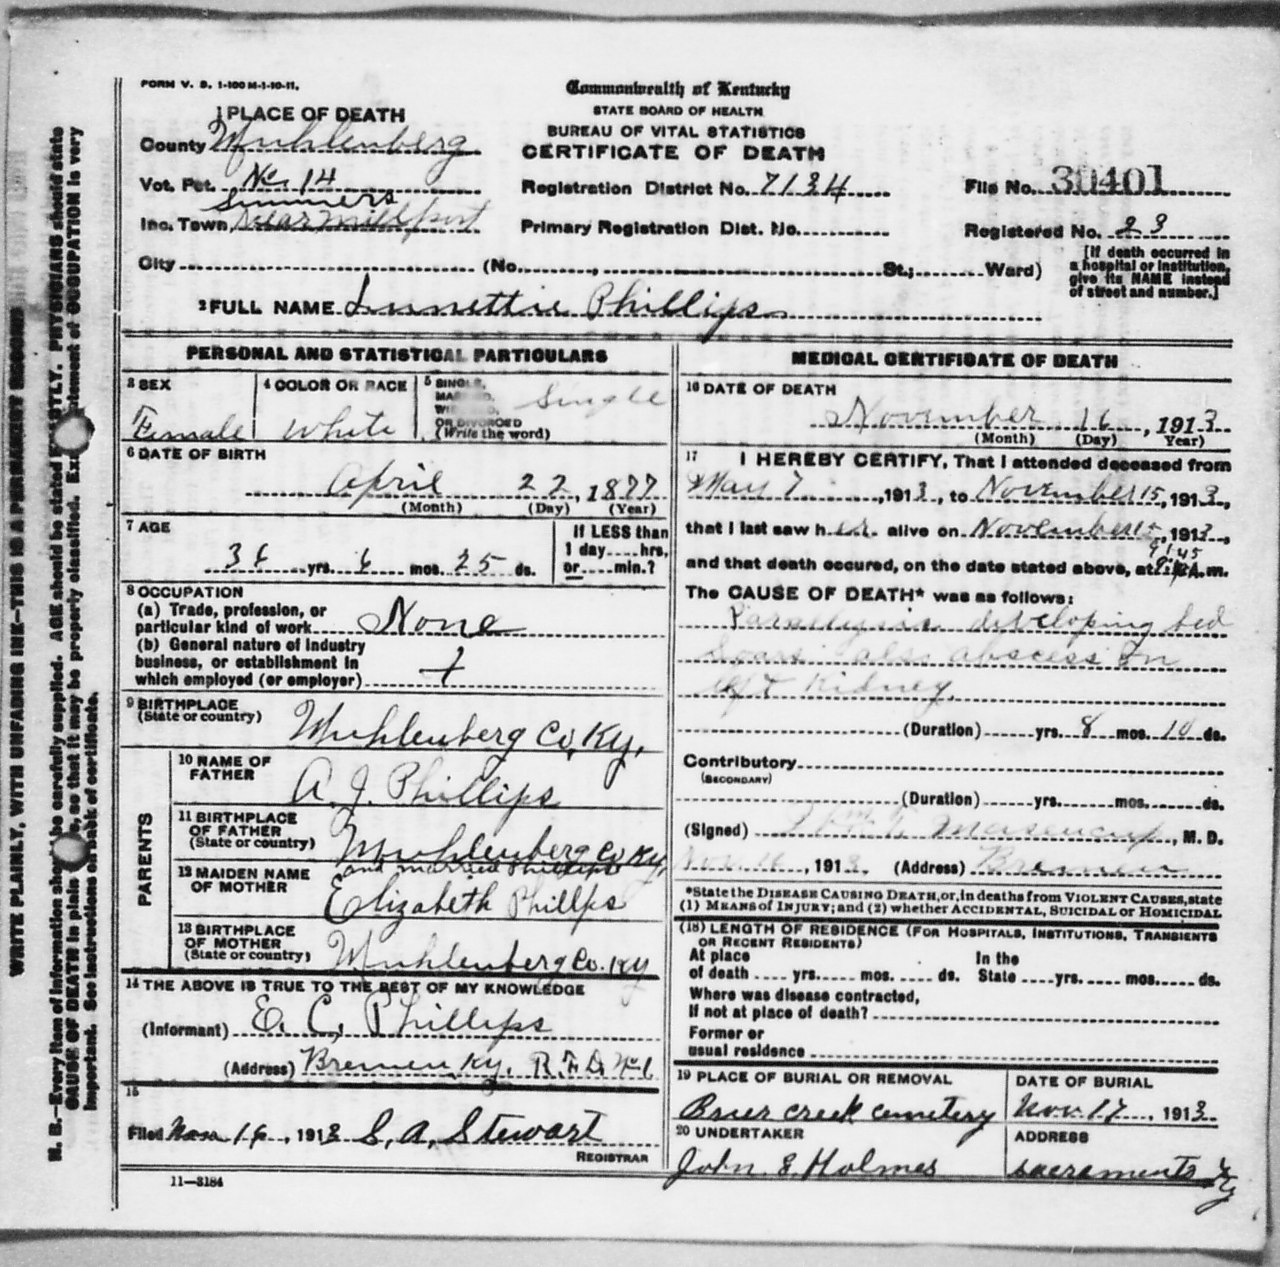 FORM V. S. 1-100 M-1-10-11.
Commonwealth of Kentucky
STATE BOARD OF HEALTH
BUREAU OF VITAL STATISTICS
CERTIFICATE OF DEATH
1 PLACE OF DEATH
County Muhlenberg
Vot. Pct. No. 14
Registration District No. 7134
File No. 30401
Simmers
Inc. Town, Near Millport
Primary Registration Dist. No.
Registered No. 23
City (No. , St.; Ward)
[If death occurred in
a hospital or institution,
give its NAME instead
of street and number.]
2 FULL NAME Lunettie Phillips
PERSONAL AND STATISTICAL PARTICULARS
3 SEX
Female
4 COLOR OR RACE
White
5 SINGLE,
OR DIVORCED
(Write the word)
Single
6 DATE OF BIRTH
April 22, 1877
(Month) (Day) (Year)
7 AGE
36 yrs. 6 mos. 25 ds.
If LESS than
1 day....hrs.
or.....min.?
8 OCCUPATION
(a) Trade, profession, or
particular kind of work None
(b) General nature of industry
business, or establishment in
which employed (or employer)
9 BIRTHPLACE
(State or country) Muhlenberg Co, Ky.
PARENTS
10 NAME OF
FATHER A. J. Phillips
11 BIRTHPLACE
OF FATHER
(State or country) Muhlenberg Co Ky,
and married Phillips
12 MAIDEN NAME
OF MOTHER Elizabeth Phillps
13 BIRTHPLACE
OF MOTHER
(State or country) Muhlenberg Co. Ky
14 THE ABOVE IS TRUE TO THE BEST OF MY KNOWLEDGE
(Informant) E. C. Phillips
(Address) Bremen, Ky, R.F.D. #1
15
Filed Nov 16, 1913 S. A. Stewart
REGISTRAR
11—3184
MEDICAL CERTIFICATE OF DEATH
16 DATE OF DEATH
November 16, 1913
(Month) (Day) Year)
17 I HEREBY CERTIFY, That I attended deceased from
May 7, 1913, to November 15, 1913,
that I last saw her alive on November 15, 1913,
9:45
and that death occured, on the date stated above, at m.
The CAUSE OF DEATH* was as follows:
Paralysis developing bed
Soars also abscess on
left Kidney.
(Duration) yrs. 8 mos. 10 ds.
Contributory
(SECONDARY)
(Duration) yrs. mos. ds.
(Signed) , M. D.
Nov. 16, 1913. (Address) Bremen
*State the DISEASE CAUSING DEATH, or, in deaths from VIOLENT CAUSES, state
(1) MEANS of INJURY; and (2) whether ACCIDENTAL, SUICIDAL or HOMICIDAL
(18) LENGTH OF RESIDENCE (FOR HOSPITALS, INSTITUTIONS, TRANSIENTS
OR RECENT RESIDENTS)
At place In the
of death .... yrs. mos. ds. State ....yrs. mos. ds.
Where was disease contracted,
If not at place of death?
Former or
usual residence
19 PLACE OF BURIAL OR REMOVAL
Brier creek cemetery
DATE OF BURIAL
Nov. 17, 1913
20 UNDERTAKER
John E Holmes
ADDRESS
Sacramento Ky
WRITE PLAINLY, WITH UNFADING INK—THIS IS A PERMANENT RECORD
N. B.—Every item of information should be carefully supplied. AGE should be stated EXACTLY. PHYSICIANS should state
CAUSE OF DEATH in plain , so that it may be properly classified. Exact statement of OCCUPATION is very
important. See instructions on back of certificate.